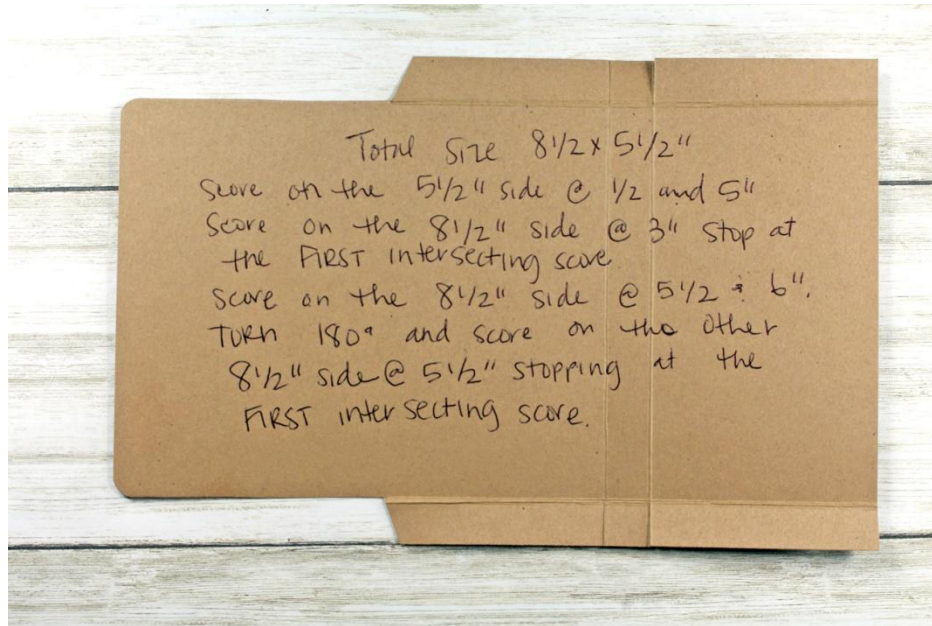 Total Size 8 1/2 x 5 1/2"
Score on the 5 1/2" side @ 1/2 and 5"
Score on the 8 1/2" side @ 3" Stop at
the FIRST intersecting score
Score on the 8 1/2" side @ 5 1/2 & 6".
TURN 180° and score on the other
8 1/2" side @ 5 1/2" stopping at the
FIRST intersecting score.